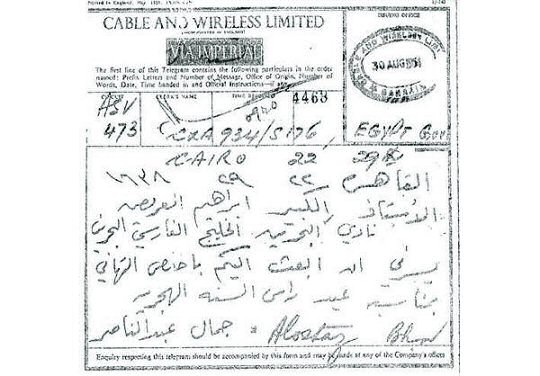 Printed in England. May 1950.
CABLE AND WIRELESS LIMITED
(INCORPORATED IN ENGLAND)
VIA IMPERIAL
The first line of this Telegram contains the following particulars in the order
named: Prefix Letters and Number of Message, Office of Origin, Number of
Words, Date, Time handed in and Official Instructions—if any.
ISSUING OFFICE
CABLE AND WIRELESS LTD.
30 AUG 51
BAHRAIN
CLERK'S NAME
TIME RECEIVED
4463
0940
473
CXA 934/S176
EGYPT Govt
CAIRO 22 29
القاهرة ٢٢ ٢٩ ١٦٣٨
الأستاذ الكبير ابراهيم العريض
نادي البحرين الخليج الفارسي البحرين
يسرني ان ابعث اليكم باخلص التهاني
بمناسبة عيد راس السنة الهجرية
جمال عبد الناصر
Enquiry respecting this telegram should be accompanied by this form and may be made at any of the Company's offices